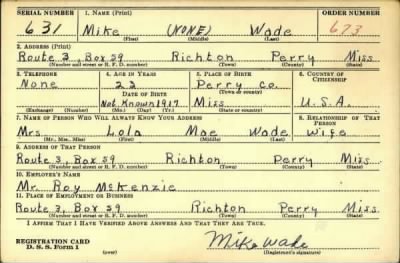 SERIAL NUMBER 1. NAME (Print) ORDER NUMBER
631 Mike (NONE) Wade 673
(First) (Middle) (Last)
2. ADDRESS (Print)
Route 3, Box 59 Richton Perry Miss
(Number and street or R. F. D. number) (Town) (County) (State)
3. TELEPHONE 4. AGE IN YEARS 5. PLACE OF BIRTH 6. COUNTRY OF CITIZENSHIP
None 23 Perry Co.
DATE OF BIRTH (Town or county)
Not Known 1917 Miss U.S.A.
(Exchange) (Number) (Mo.) (Day) (Yr.) (State or country)
7. NAME OF PERSON WHO WILL ALWAYS KNOW YOUR ADDRESS 8. RELATIONSHIP OF THAT PERSON
Mrs Lola Mae Wade Wife
(Mr., Mrs., Miss) (First) (Middle) (Last)
9. ADDRESS OF THAT PERSON
Route 3, Box 59 Richton Perry Miss
(Number and street or R. F. D. number) (Town) (County) (State)
10. EMPLOYER'S NAME
Mr. Roy McKenzie
11. PLACE OF EMPLOYMENT OR BUSINESS
Route 3, Box 59 Richton Perry Miss
(Number and street or R. F. D. number) (Town) (County) (State)
I AFFIRM THAT I HAVE VERIFIED ABOVE ANSWERS AND THAT THEY ARE TRUE.
REGISTRATION CARD Mike Wade
D. S. S. Form 1 (Registrant's signature)